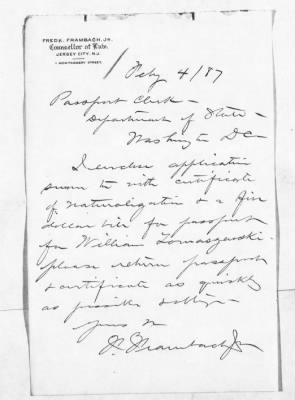 FREDK. FRAMBACH, JR.
Counsellor at Law.
JERSEY CITY, N.J.
1 MONTGOMERY STREET.
Feby 4/87
Passport Clerk -
Department of State -
Washington DC -
I enclose application
sworn to with certificate
of naturalization & a five
dollar bill for passport
for William
please return passport
& certificate as quickly
as possible &
yours &c
F. Frambach Jr